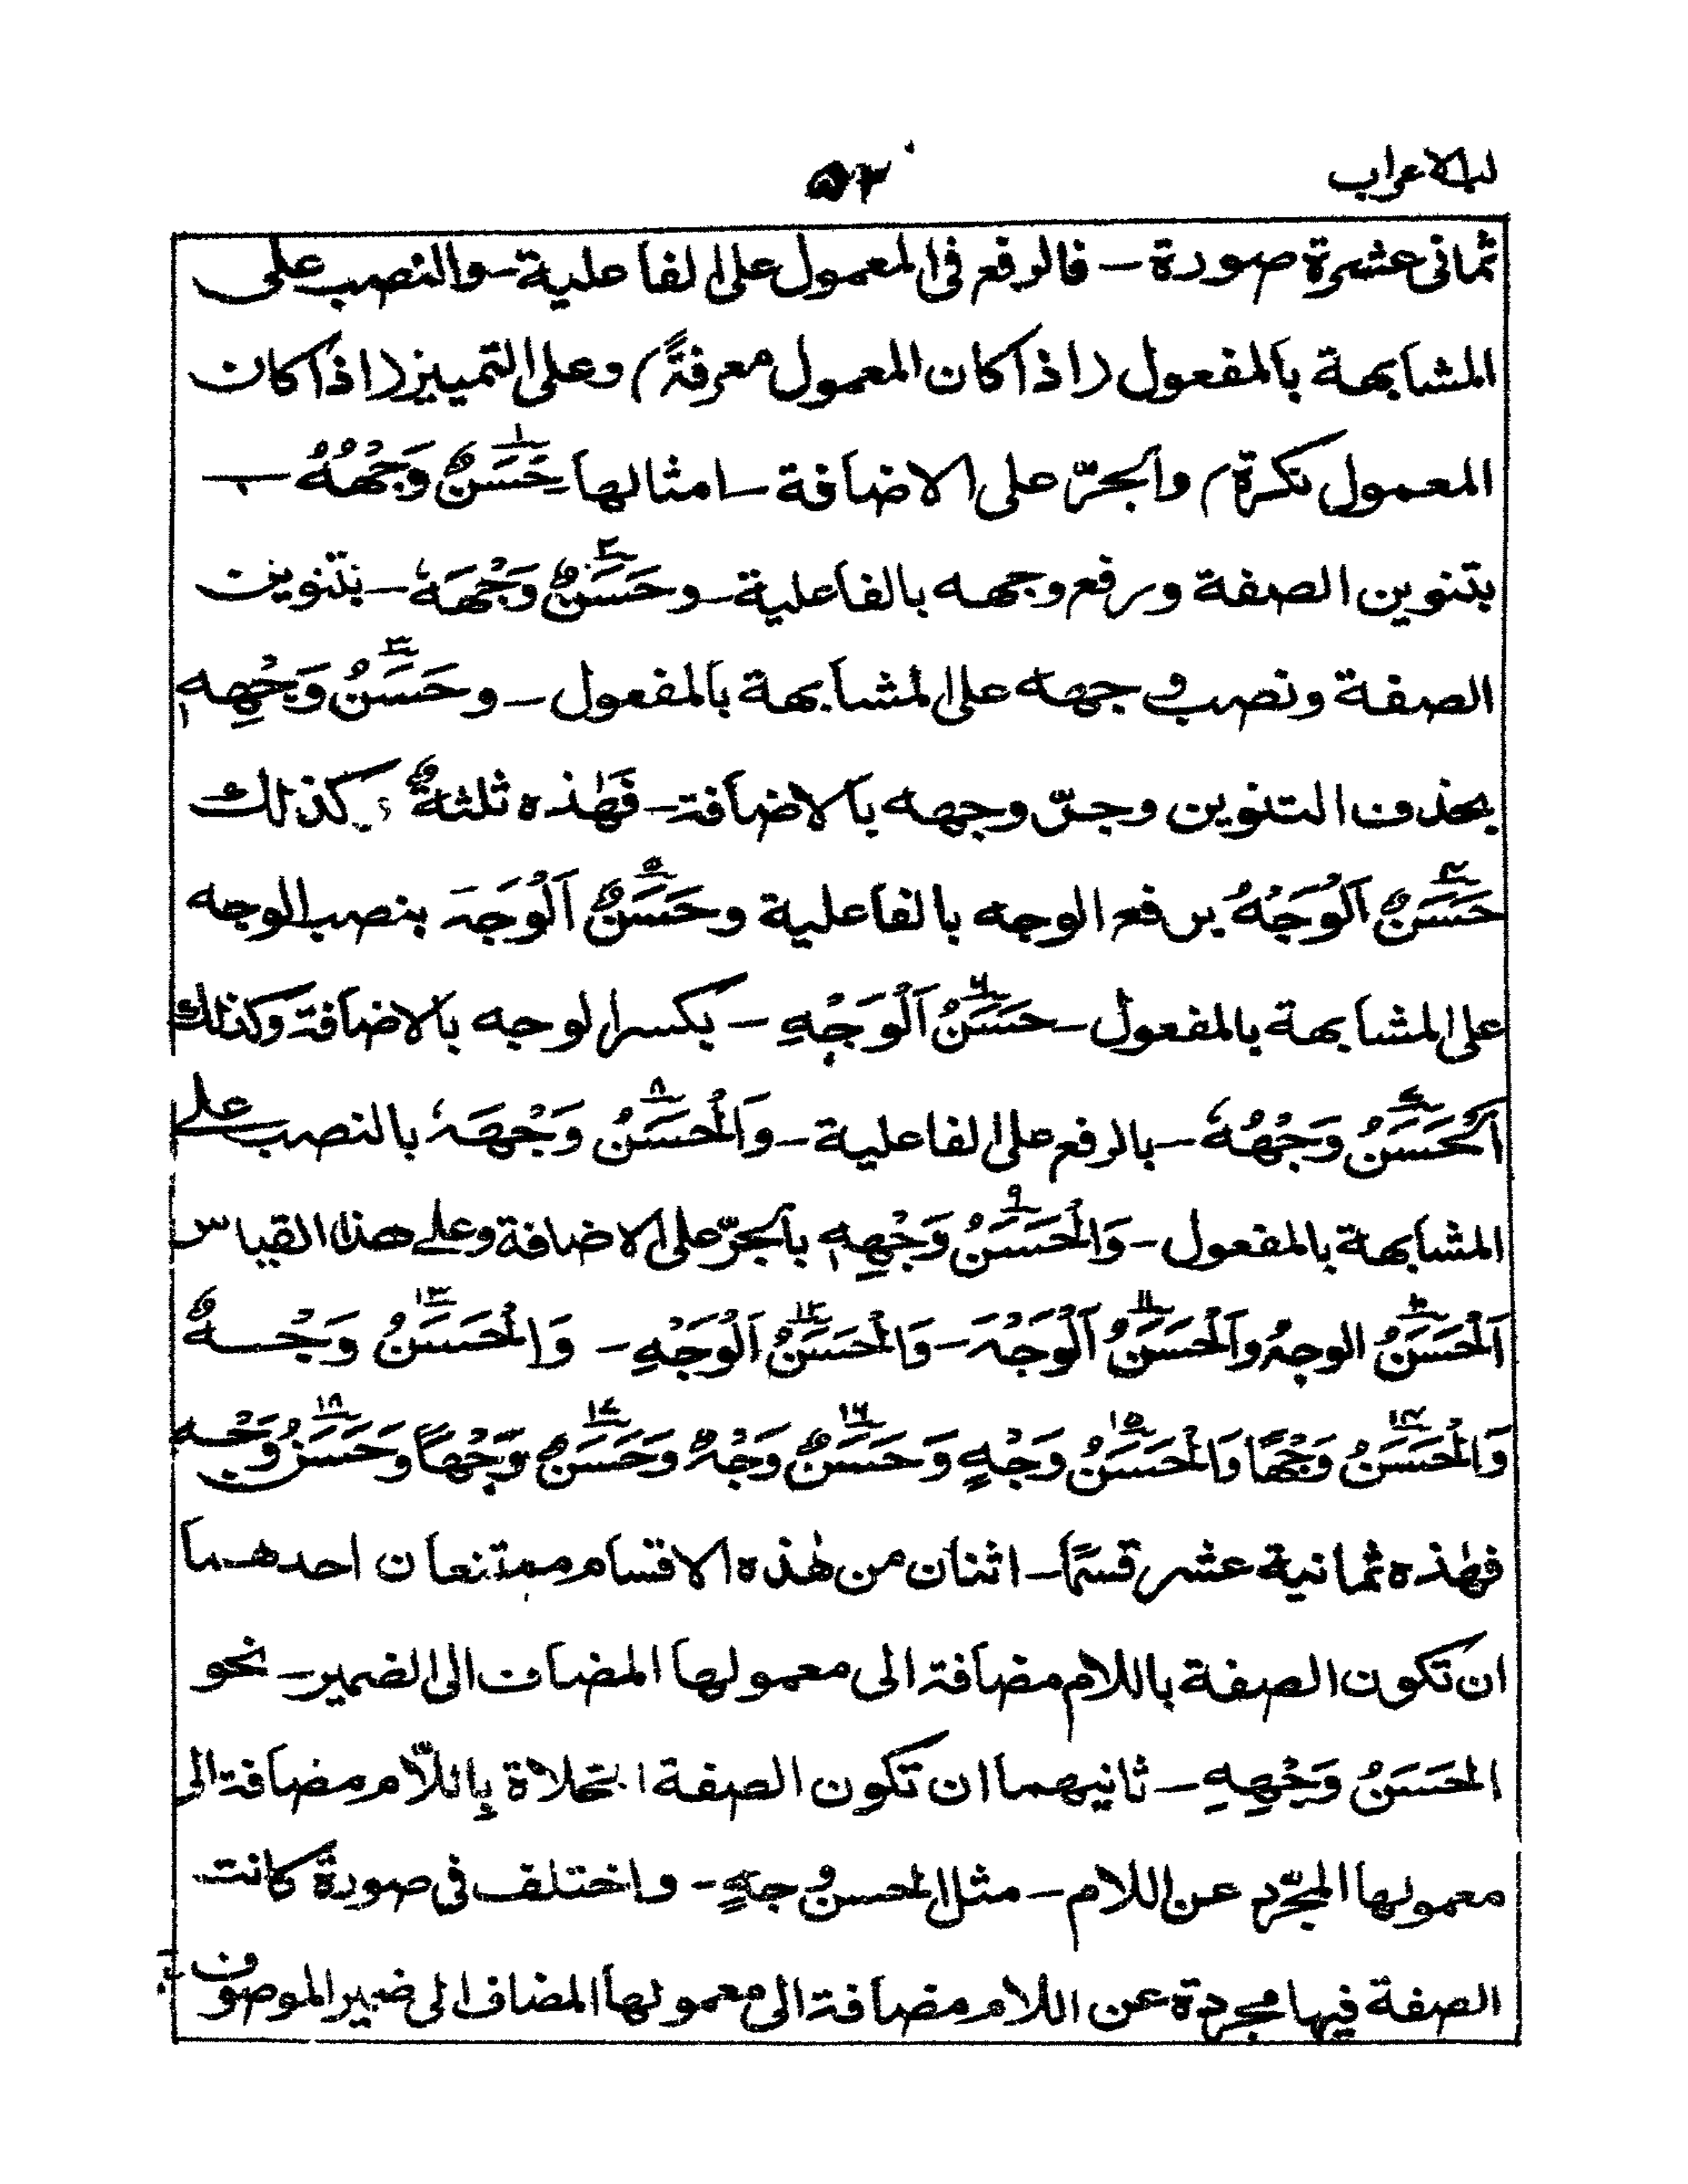 لب الاعراب
۵۳
ثمانى عشرة صورة - فالرفع فى المعمول على الفاعلية - والنصب على
المشابهة بالمفعول (اذا كان المعمول معرفةً) وعلى التمييز (اذا كان
المعمول نكرة) والجرّ على الاضافة - امثالها حَسَنٌ وَجْهُهُ -
بتنوين الصفة ورفع وجهه بالفاعلية - و حَسَنٌ وَجْهَهٗ - بتنوين
الصفة ونصب وجهه على المشابهة بالمفعول - و حَسَنُ وَجْهِهٖ
بحذف التنوين وجرّ وجهه بالاضافة - فَهٰذه ثلثةٌ كذلك
حَسَنٌ اَلْوَجْهُ برفع الوجه بالفاعلية وحَسَنٌ اَلْوَجْهَ بنصب الوجه
على المشابهة بالمفعول - حَسَنُ اَلْوَجْهِ - بكسر الوجه بالاضافة وكذلك
اَلْحَسَنُ وَجْهُهٗ - بالرفع على الفاعلية - وَالْحَسَنُ وَجْهَهٗ بالنصب علے
المشابهة بالمفعول - وَالْحَسَنُ وَجْهِهٖ بالجرّ على الاضافة وعلے هذا القياس
اَلْحَسَنُ الوجهُ واَلْحَسَنُ اَلْوَجْهَ - وَالْحَسَنُ اَلْوَجْهِ - وَالْحَسَنُ وَجْهٌ
وَالْحَسَنُ وَجْهًا وَالْحَسَنُ وَجْهٍ وَحَسَنٌ وَجْهٌ وَحَسَنٌ وَجْهًا وَحَسَنُ وَجْهٍ
فهٰذه ثمانية عشر قسمًا - اثنان من هٰذه الاقسام ممتنعان احدهما
ان تكون الصفة باللام مضافة الى معمولها المضاف الى الضمير - نحو
الحَسَنُ وَجْهِهِ - ثانيهما ان تكون الصفة باللّام مضافة الى
معمولها المجرّد عن اللام - مثل الحسنُ وجهٍ - واختلف فى صورة كانت
الصفة فيها مجردة عن اللام مضافة الى معمولها المضاف الى ضمير الموصوف